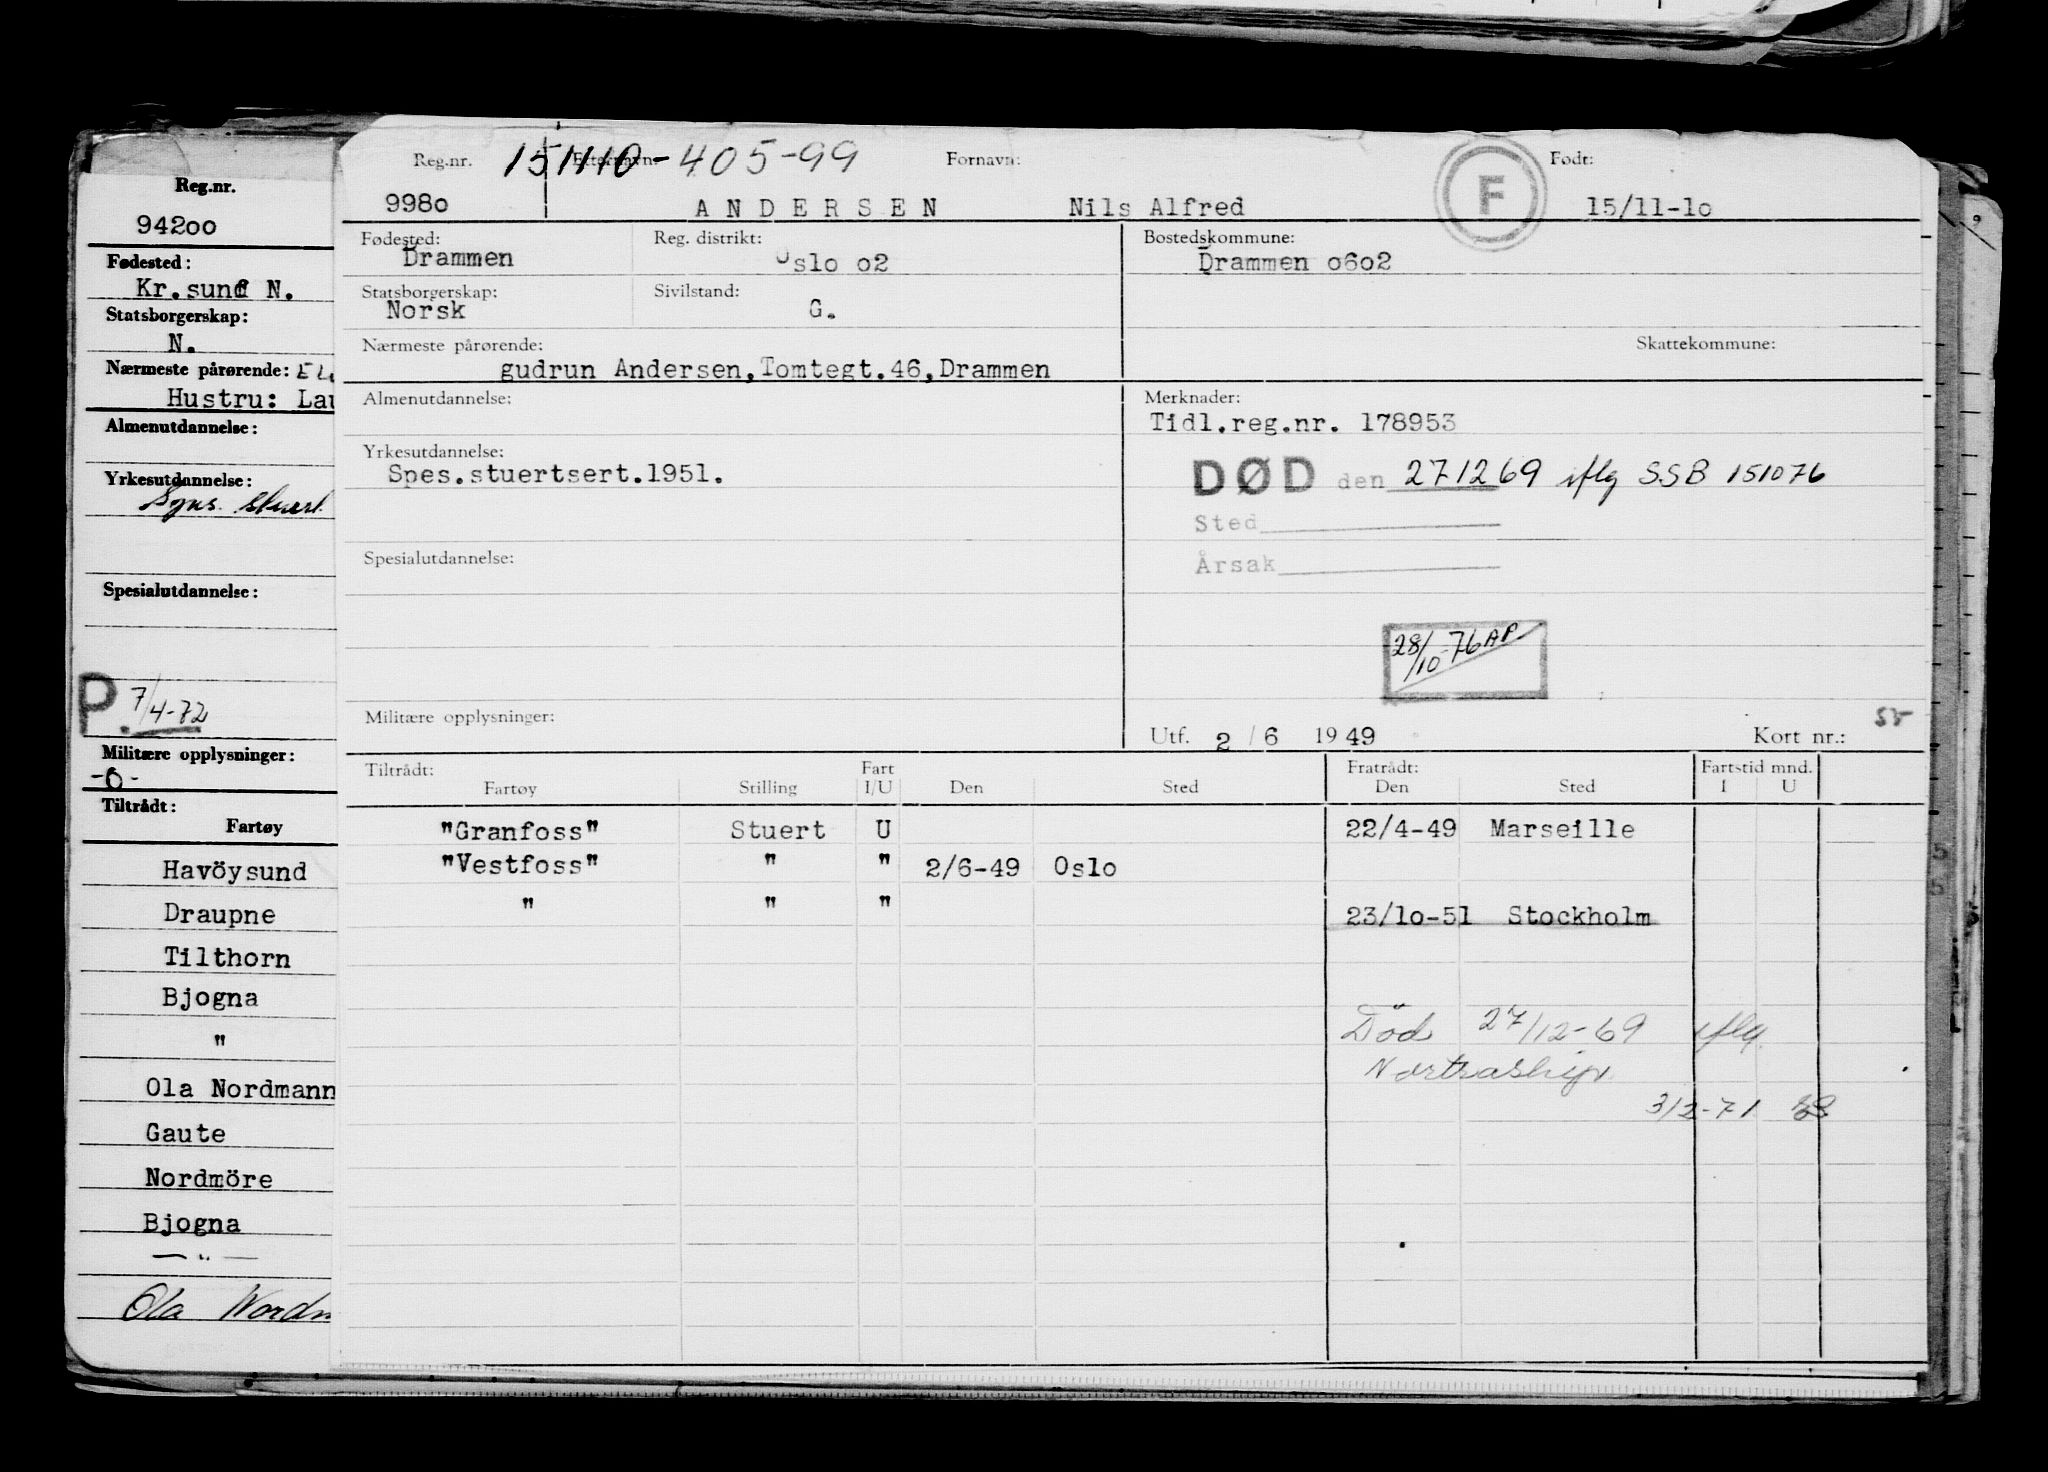 Reg.nr.
94200
Fødested:
Kr.sund N.
Statsborgerskap:
N.
Nærmeste pårørende:
Hustru:
Almenutdannelse:
Yrkesutdannelse:
stuert
Spesialutdannelse:
P. 7/4-72
Militære opplysninger:
-0-
Tiltrådt:
Fartøy
Havöysund
Draupne
Tilthorn
Bjogna
"
Ola Nordmann
Gaute
Nordmöre
Bjogna
— " —
Ola
Reg.nr. 151110-405-99 Etternavn: Fornavn: F Født:
9980 ANDERSEN Nils Alfred 15/11-10
Fødested: Reg. distrikt: Bostedskommune:
Drammen Oslo 02 Drammen 0602
Statsborgerskap: Sivilstand:
Norsk G.
Nærmeste pårørende: Skattekommune:
gudrun Andersen,Tomtegt.46,Drammen
Almenutdannelse: Merknader:
Tidl.reg.nr. 178953
Yrkesutdannelse:
Spes.stuertsert.1951. DØD den 271269 iflg SSB 151076
Sted
Spesialutdannelse: Årsak
28/10-76 AP
Militære opplysninger: 55
Utf. 2/6 1949 Kort nr.:
Tiltrådt: Fart Fratrådt: Fartstid mnd.
Fartøy Stilling I/U Den Sted Den Sted I U
"Granfoss" Stuert U 22/4-49 Marseille
"Vestfoss" " " 2/6-49 Oslo
" " " 23/10-51 Stockholm
Död 27/12-69 iflg.
Nortraship
3/2-71